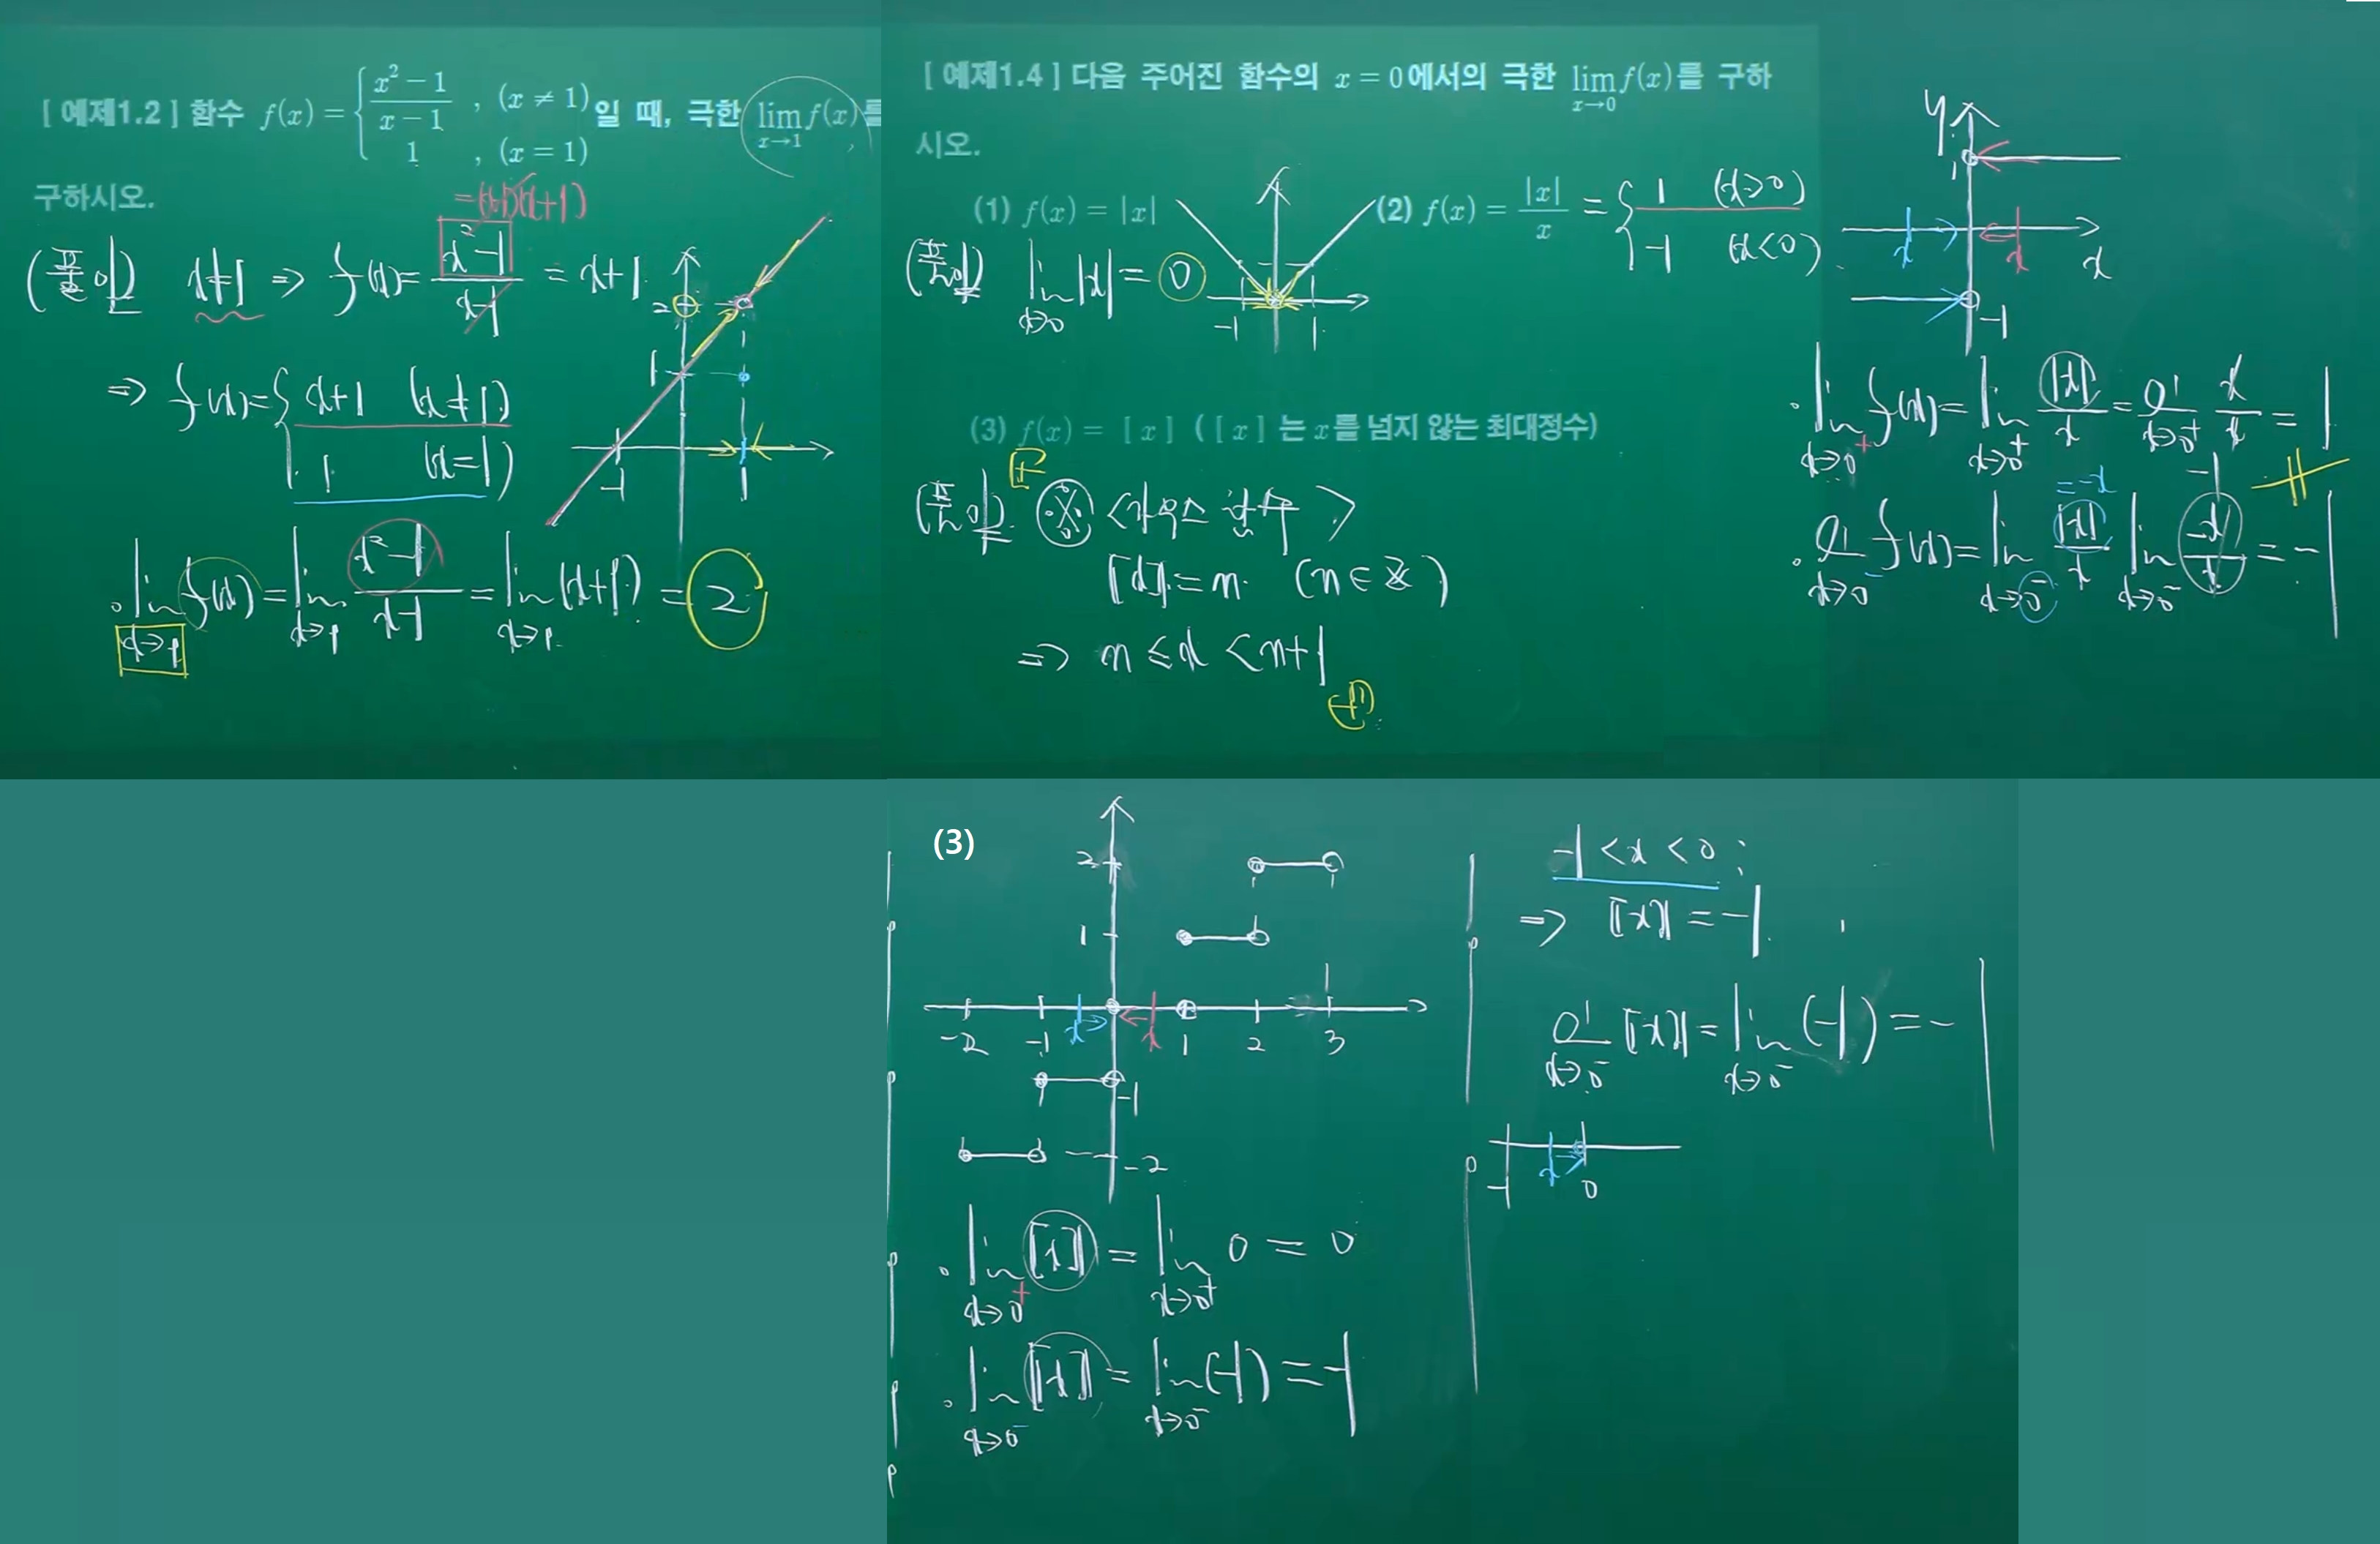 [ 예제1.2 ] 함수 f(x) = { (x² − 1)/(x − 1) , (x ≠ 1)
1 , (x = 1) 일 때, 극한 lim x→1 f(x)를
구하시오.
= (x-1)(x+1)
(풀이) x≠1 ⇒ f(x) = (x²-1)/(x-1) = x+1
⇒ f(x) = { x+1 (x≠1)
1 (x=1)
2
1
-1 1
lim x→1 f(x) = lim x→1 (x²-1)/(x-1) = lim x→1 (x+1) = 2
[ 예제1.4 ] 다음 주어진 함수의 x = 0에서의 극한 lim x→0 f(x)를 구하
시오.
(1) f(x) = |x|
(풀이) lim x→0 |x| = 0
-1 1
(2) f(x) = |x|/x = { 1 (x>0)
-1 (x<0)
y
1
x x x
-1
lim x→0⁺ f(x) = lim x→0⁺ |x|/x = lim x→0⁺ x/x = 1
= -x
-1
lim x→0⁻ f(x) = lim x→0⁻ |x|/x lim x→0⁻ -x/x = -1
(3) f(x) = [ x ] ( [ x ] 는 x를 넘지 않는 최대정수)
(풀이) ※ <가우스 함수>
[x] = n (n∈Z)
⇒ n ≤ x < n+1
(3)
2
1
-2 -1 x x 1 2 3
-1
-2
lim x→0⁺ [x] = lim x→0⁺ 0 = 0
lim x→0⁻ [x] = lim x→0⁻ (-1) = -1
-1 < x < 0 ;
⇒ [x] = -1
lim x→0⁻ [x] = lim x→0⁻ (-1) = -1
-1 x 0